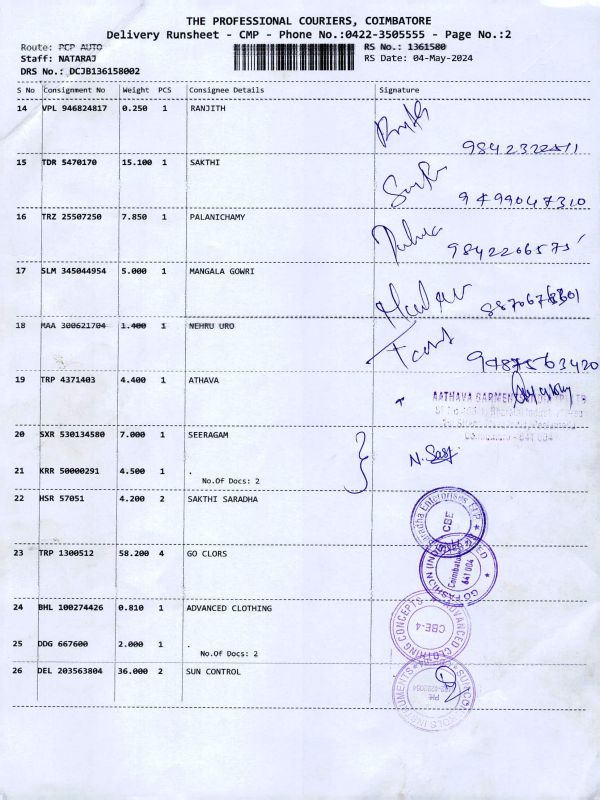 THE PROFESSIONAL COURIERS, COIMBATORE
Delivery Runsheet - CMP - Phone No.:0422-3505555 - Page No.:2
Route: PCP AUTO RS No.: 1361580
Staff: NATARAJ RS Date: 04-May-2024
DRS No.: DCJB136158002
S No Consignment No Weight PCS Consignee Details Signature
14 VPL 946824817 0.250 1 RANJITH
15 TDR 5470170 15.100 1 SAKTHI
9499047310
16 TRZ 25507250 7.850 1 PALANICHAMY
9842206575
17 SLM 345044954 5.000 1 MANGALA GOWRI
18 MAA 300621704 1.400 1 NEHRU URO
9487563420
19 TRP 4371403 4.400 1 ATHAVA
AATHAVA GARMENTS
20 SXR 530134580 7.000 1 SEERAGAM
N. Sasi
21 KRR 50000291 4.500 1 .
No.Of Docs: 2
22 HSR 57051 4.200 2 SAKTHI SARADHA
Enterprises CBE
23 TRP 1300512 58.200 4 GO CLORS
GO FASHION Coimbatore 641 004
24 BHL 100274426 0.810 1 ADVANCED CLOTHING
ADVANCED CLOTHING CONCEPTS CBE-4
25 DDG 667600 2.000 1 .
No.Of Docs: 2
26 DEL 203563804 36.000 2 SUN CONTROL